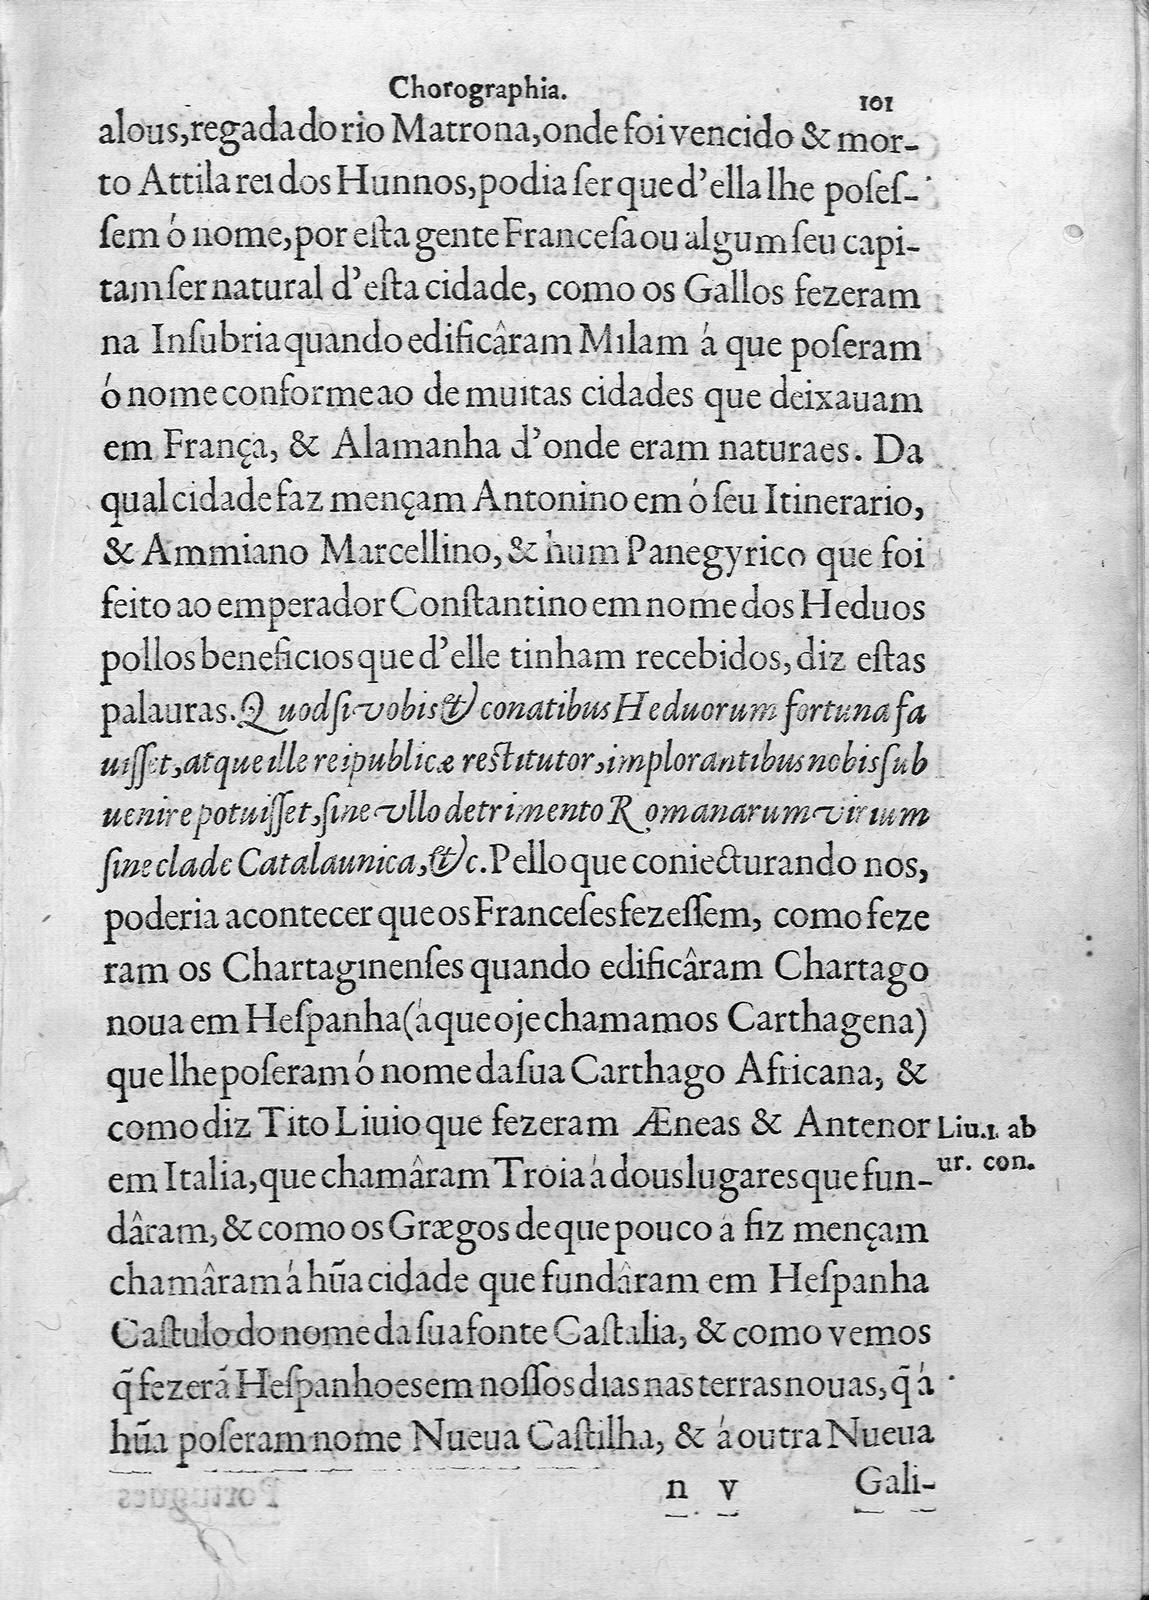 Chorographia. 101
alous, regada do rio Matrona, onde foi vencido & mor-
to Attila rei dos Hunnos, podia ser que d'ella lhe poſeſ-
ſem ó nome, por eſta gente Franceſa ou algum ſeu capi-
tam ſer natural d'eſta cidade, como os Gallos fezeram
na Inſubria quando edificâram Milam á que poſeram
ó nome conforme ao de muitas cidades que deixauam
em França, & Alamanha d'onde eram naturaes. Da
qual cidade faz mençam Antonino em ó ſeu Itinerario,
& Ammiano Marcellino, & hum Panegyrico que foi
feito ao emperador Conſtantino em nome dos Heduos
pollos beneficios que d'elle tinham recebidos, diz eſtas
palauras. Quod ſi vobis & conatibus Heduorum fortuna fa
uiſſet, atque ille reipublicæ reſtitutor, implorantibus nobis ſub
uenire potuiſſet, ſine vllo detrimento Romanarum virium
ſine clade Catalaunica, &c. Pello que coniecturando nos,
poderia acontecer que os Franceſes fezeſſem, como feze
ram os Chartaginenſes quando edificâram Chartago
noua em Heſpanha (á que oje chamamos Carthagena)
que lhe poſeram ó nome da ſua Carthago Africana, &
como diz Tito Liuio que fezeram Æneas & Antenor
Liu. 1. ab
ur. con.
em Italia, que chamâram Troia á dous lugares que fun-
dâram, & como os Grægos de que pouco á fiz mençam
chamâram á hũa cidade que fundâram em Heſpanha
Caſtulo do nome da ſua fonte Caſtalia, & como vemos
q̃ fezerã Heſpanhoes em noſſos dias nas terras nouas, q̃ á
hũa poſeram nome Nueua Caſtilha, & á outra Nueua
n v Gali-